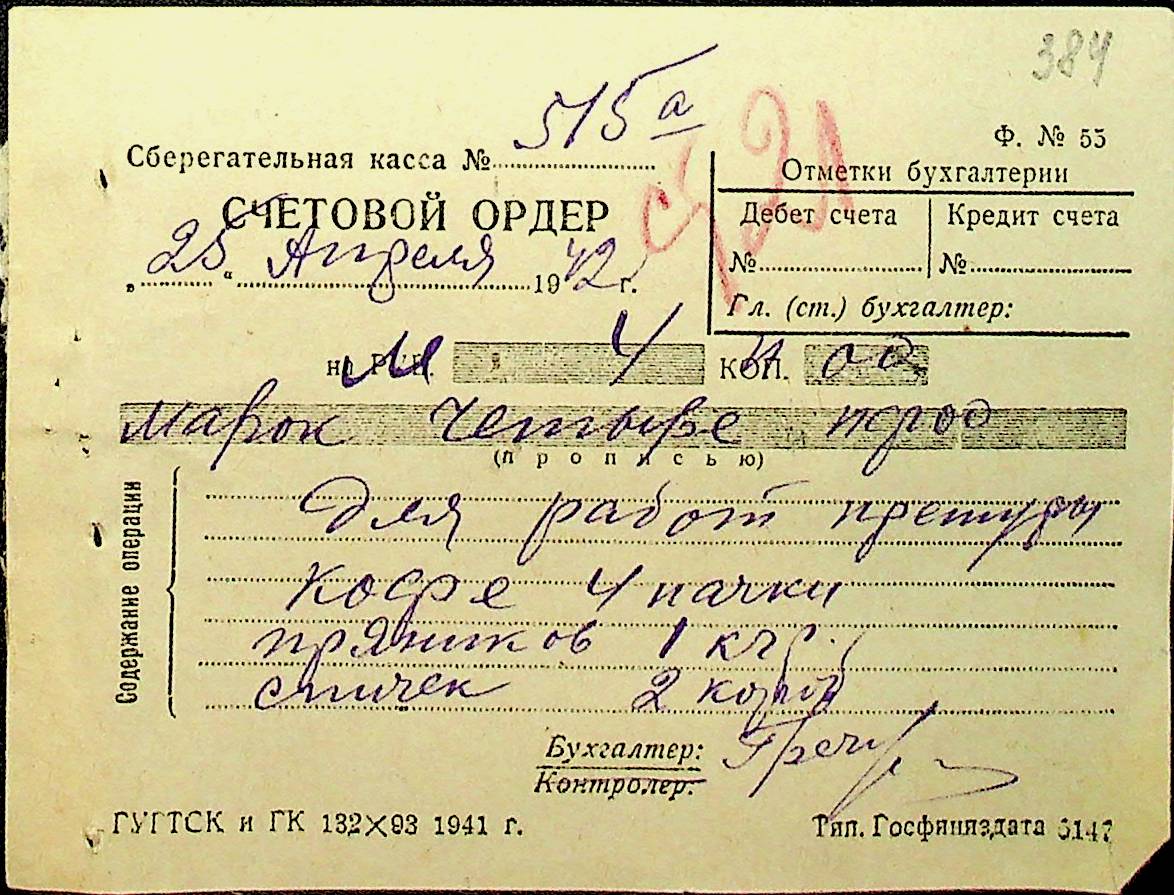 384
515а
Ф. № 55
Сберегательная касса №
Отметки бухгалтерии
СЧЕТОВОЙ ОРДЕР
Дебет счета Кредит счета
„25“ Апреля 1942 г.
№ №
Гл. (ст.) бухгалтер:
на РУБ. 4 КОП. 00
марок четыре
(прописью)
Содержание операции
Для работ
кофе 4 пачки
пряников 1 кгр.
спичек 2 короб
Бухгалтер:
Контролер:
ГУГТСК и ГК 132×93 1941 г.
Тип. Госфиниздата 6147